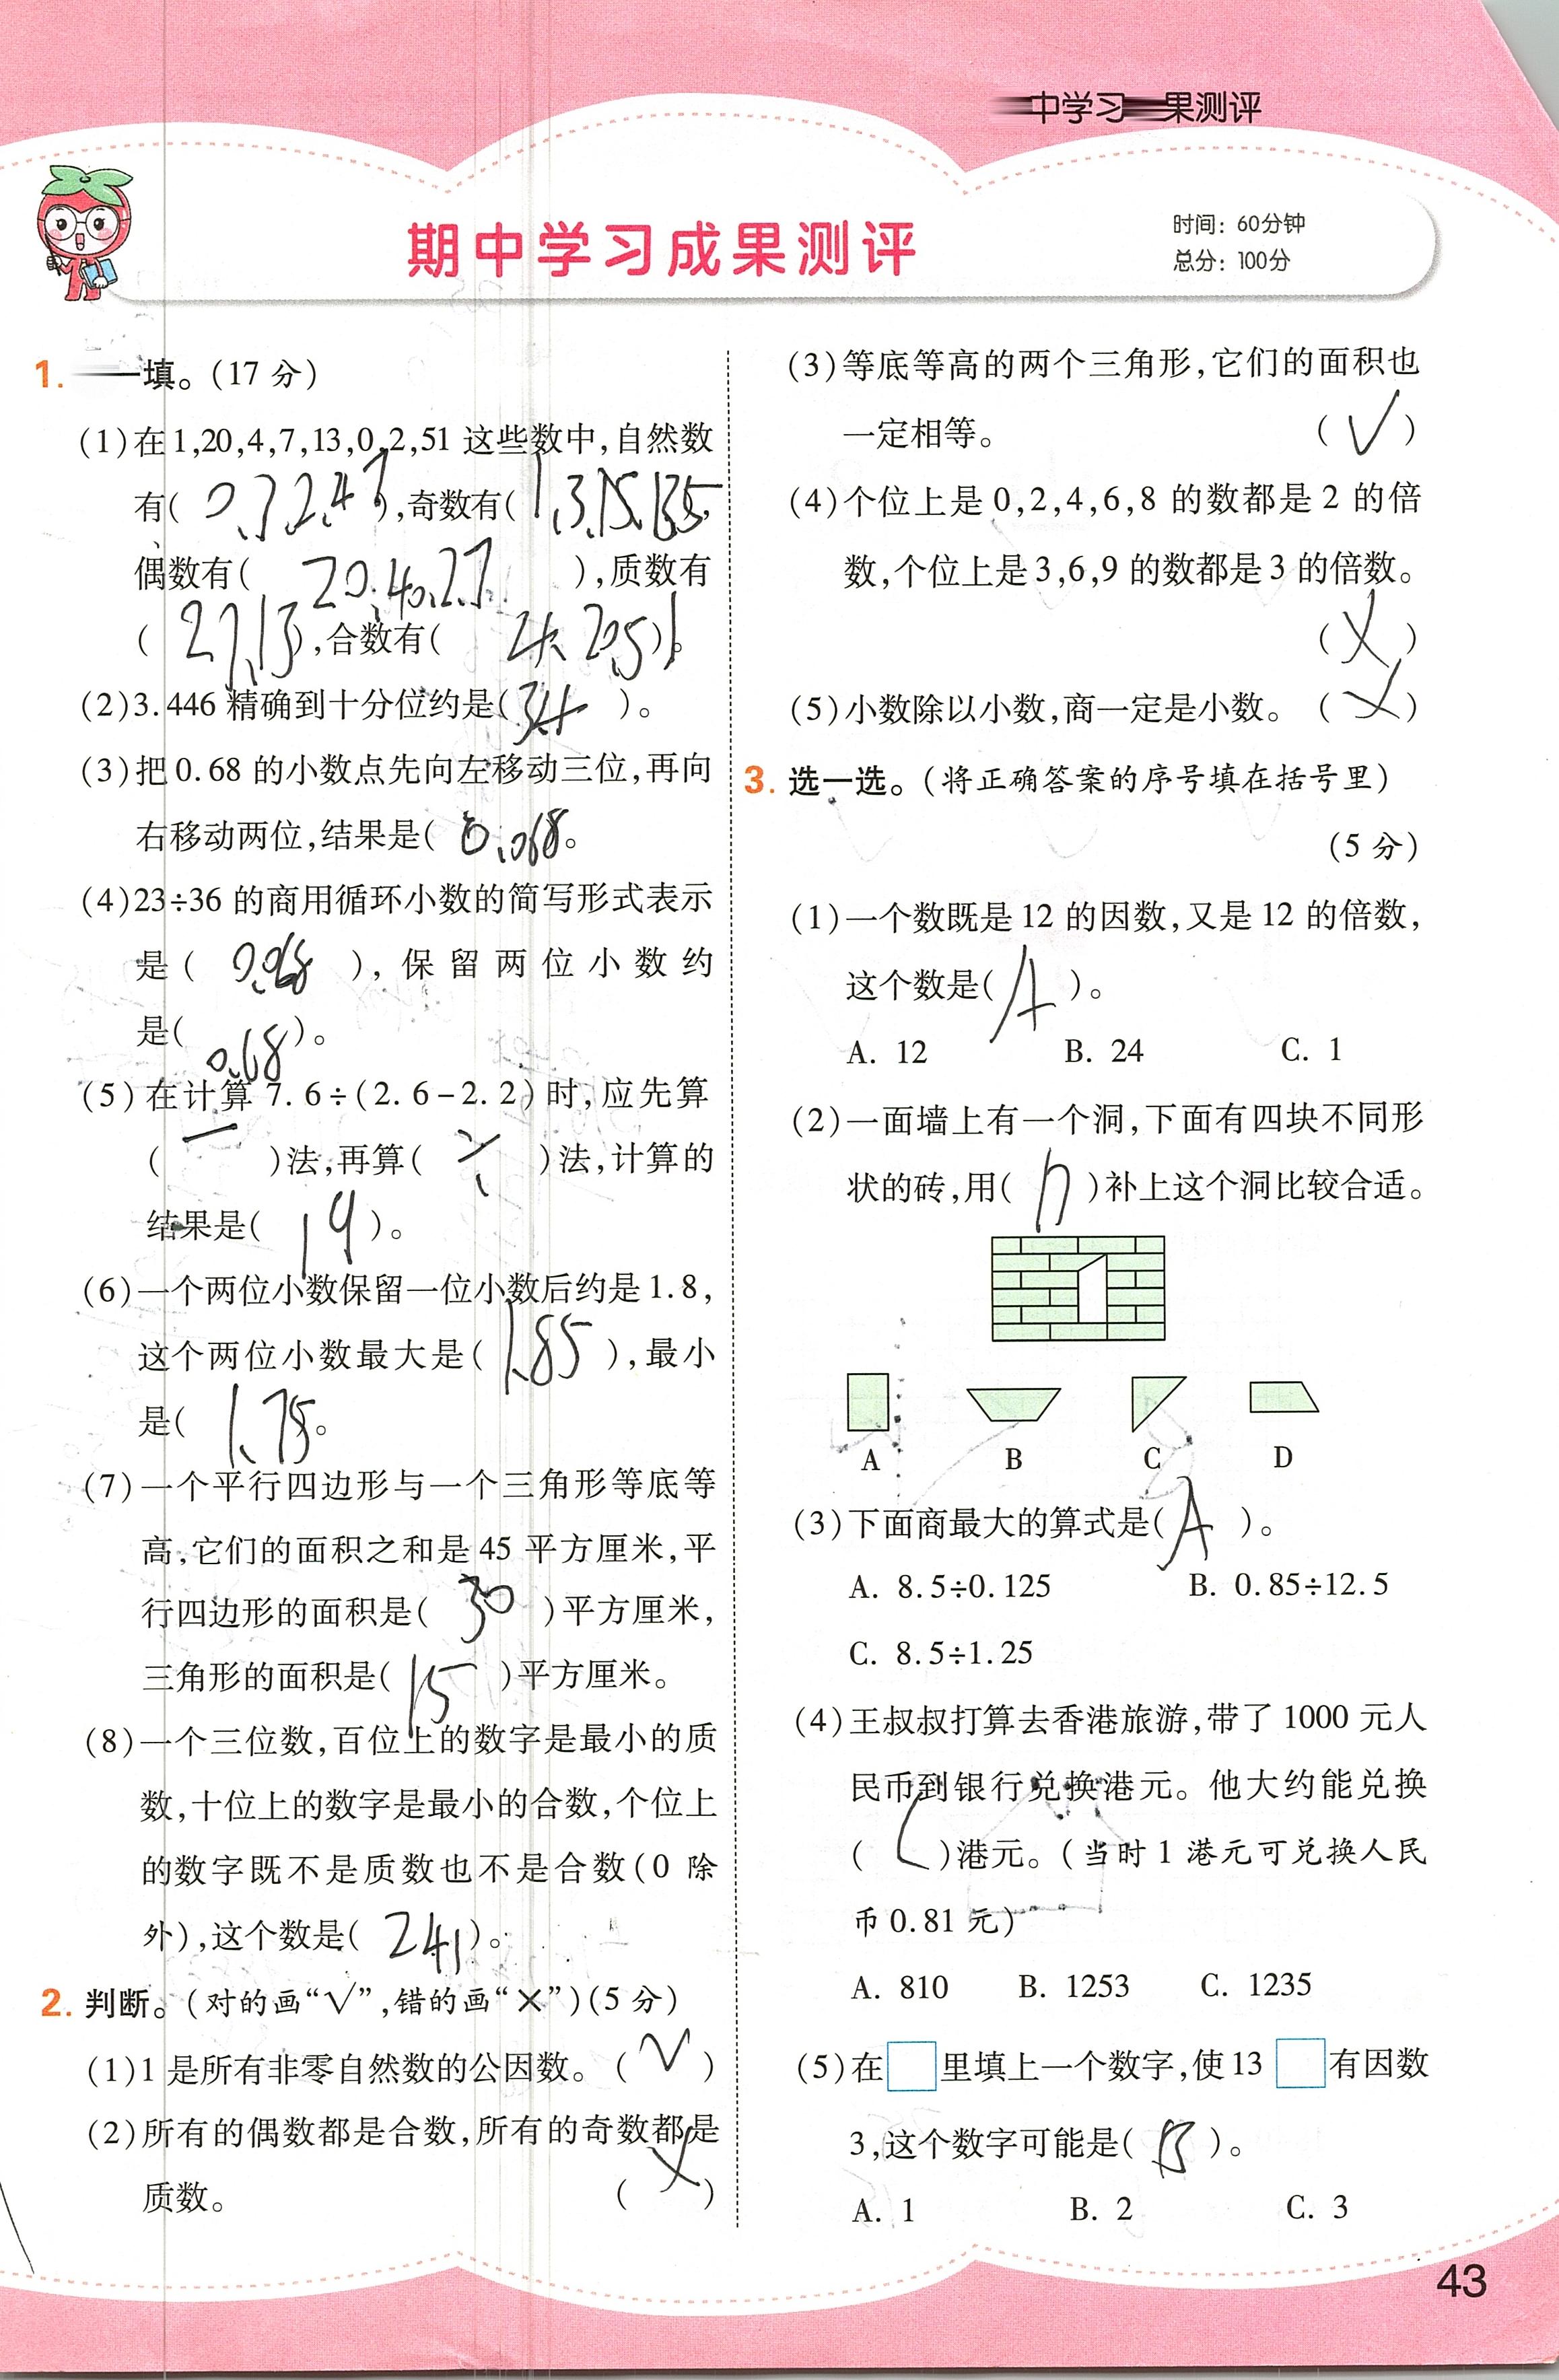 中学习 果测评
期中学习成果测评
时间：60分钟
总分：100分
1. 填。(17 分)
(1)在1,20,4,7,13,0,2,51 这些数中,自然数
有( ),奇数有(
偶数有( ),质数有
( ),合数有( )。
(2)3.446 精确到十分位约是(3.4)。
(3)把0.68 的小数点先向左移动三位,再向
右移动两位,结果是( 0.068 。
(4)23÷36 的商用循环小数的简写形式表示
是( ),保留两位小数约
是( 0.68 )。
(5)在计算 7.6÷(2.6-2.2)时,应先算
( 一 )法,再算( ÷ )法,计算的
结果是( 19 )。
(6)一个两位小数保留一位小数后约是1.8,
这个两位小数最大是( 1.85 ),最小
是( 1.75 。
(7)一个平行四边形与一个三角形等底等
高,它们的面积之和是45 平方厘米,平
行四边形的面积是( 30 )平方厘米,
三角形的面积是( 15 )平方厘米。
(8)一个三位数,百位上的数字是最小的质
数,十位上的数字是最小的合数,个位上
的数字既不是质数也不是合数(0 除
外),这个数是( 241 )。
2. 判断。(对的画“√”,错的画“×”)(5 分)
(1)1 是所有非零自然数的公因数。( √ )
(2)所有的偶数都是合数,所有的奇数都是
质数。 ( × )
(3)等底等高的两个三角形,它们的面积也
一定相等。 ( √ )
(4)个位上是 0,2,4,6,8 的数都是 2 的倍
数,个位上是3,6,9 的数都是3 的倍数。
( × )
(5)小数除以小数,商一定是小数。( × )
3. 选一选。(将正确答案的序号填在括号里)
(5 分)
(1)一个数既是12 的因数,又是12 的倍数,
这个数是( A )。
A. 12 B. 24 C. 1
(2)一面墙上有一个洞,下面有四块不同形
状的砖,用( )补上这个洞比较合适。
A B C D
(3)下面商最大的算式是( A )。
A. 8.5÷0.125 B. 0.85÷12.5
C. 8.5÷1.25
(4)王叔叔打算去香港旅游,带了 1000 元人
民币到银行兑换港元。他大约能兑换
( C )港元。(当时 1 港元可兑换人民
币0.81 元)
A. 810 B. 1253 C. 1235
(5)在□里填上一个数字,使13□有因数
3,这个数字可能是( B )。
A. 1 B. 2 C. 3
43